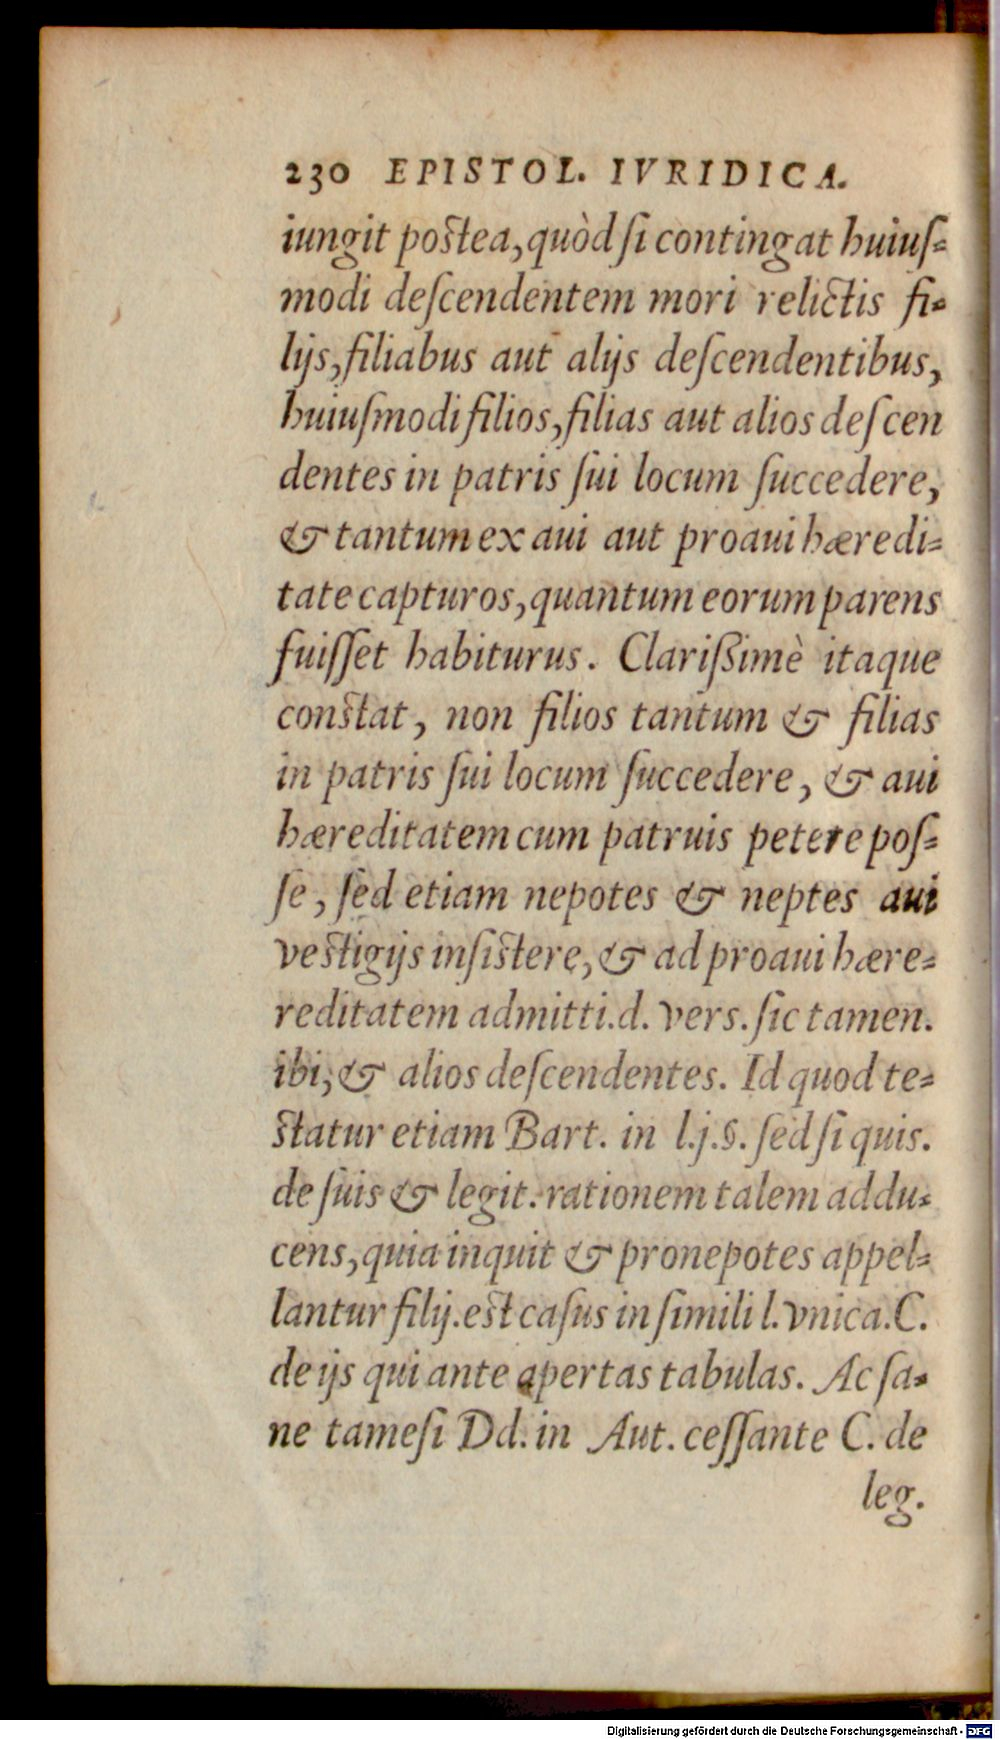 230 EPISTOL. IVRIDICA.
iungit postea, quòd ſi contingat huiuſ-
modi deſcendentem mori relictis fi-
lijs, filiabus aut alijs deſcendentibus,
huiuſmodi filios, filias aut alios deſcen
dentes in patris ſui locum ſuccedere,
& tantum ex aui aut proaui hæredi-
tate capturos, quantum eorum parens
fuiſſet habiturus. Clarißimè itaque
constat, non filios tantum & filias
in patris ſui locum ſuccedere, & aui
hæreditatem cum patruis petere poſ-
ſe, ſed etiam nepotes & neptes aui
vestigijs inſistere, & ad proaui hære-
reditatem admitti. d. verſ. ſic tamen.
ibi, & alios deſcendentes. Id quod te-
statur etiam Bart. in l.j.§. ſed ſi quis.
de ſuis & legit. rationem talem addu-
cens, quia inquit & pronepotes appel-
lantur filij. est caſus in ſimili l. vnica. C.
de ijs qui ante apertas tabulas. Ac ſa-
ne tameſi Dd. in Aut. ceſſante C. de
leg.
Digitalisierung gefördert durch die Deutsche Forschungsgemeinschaft - DFG